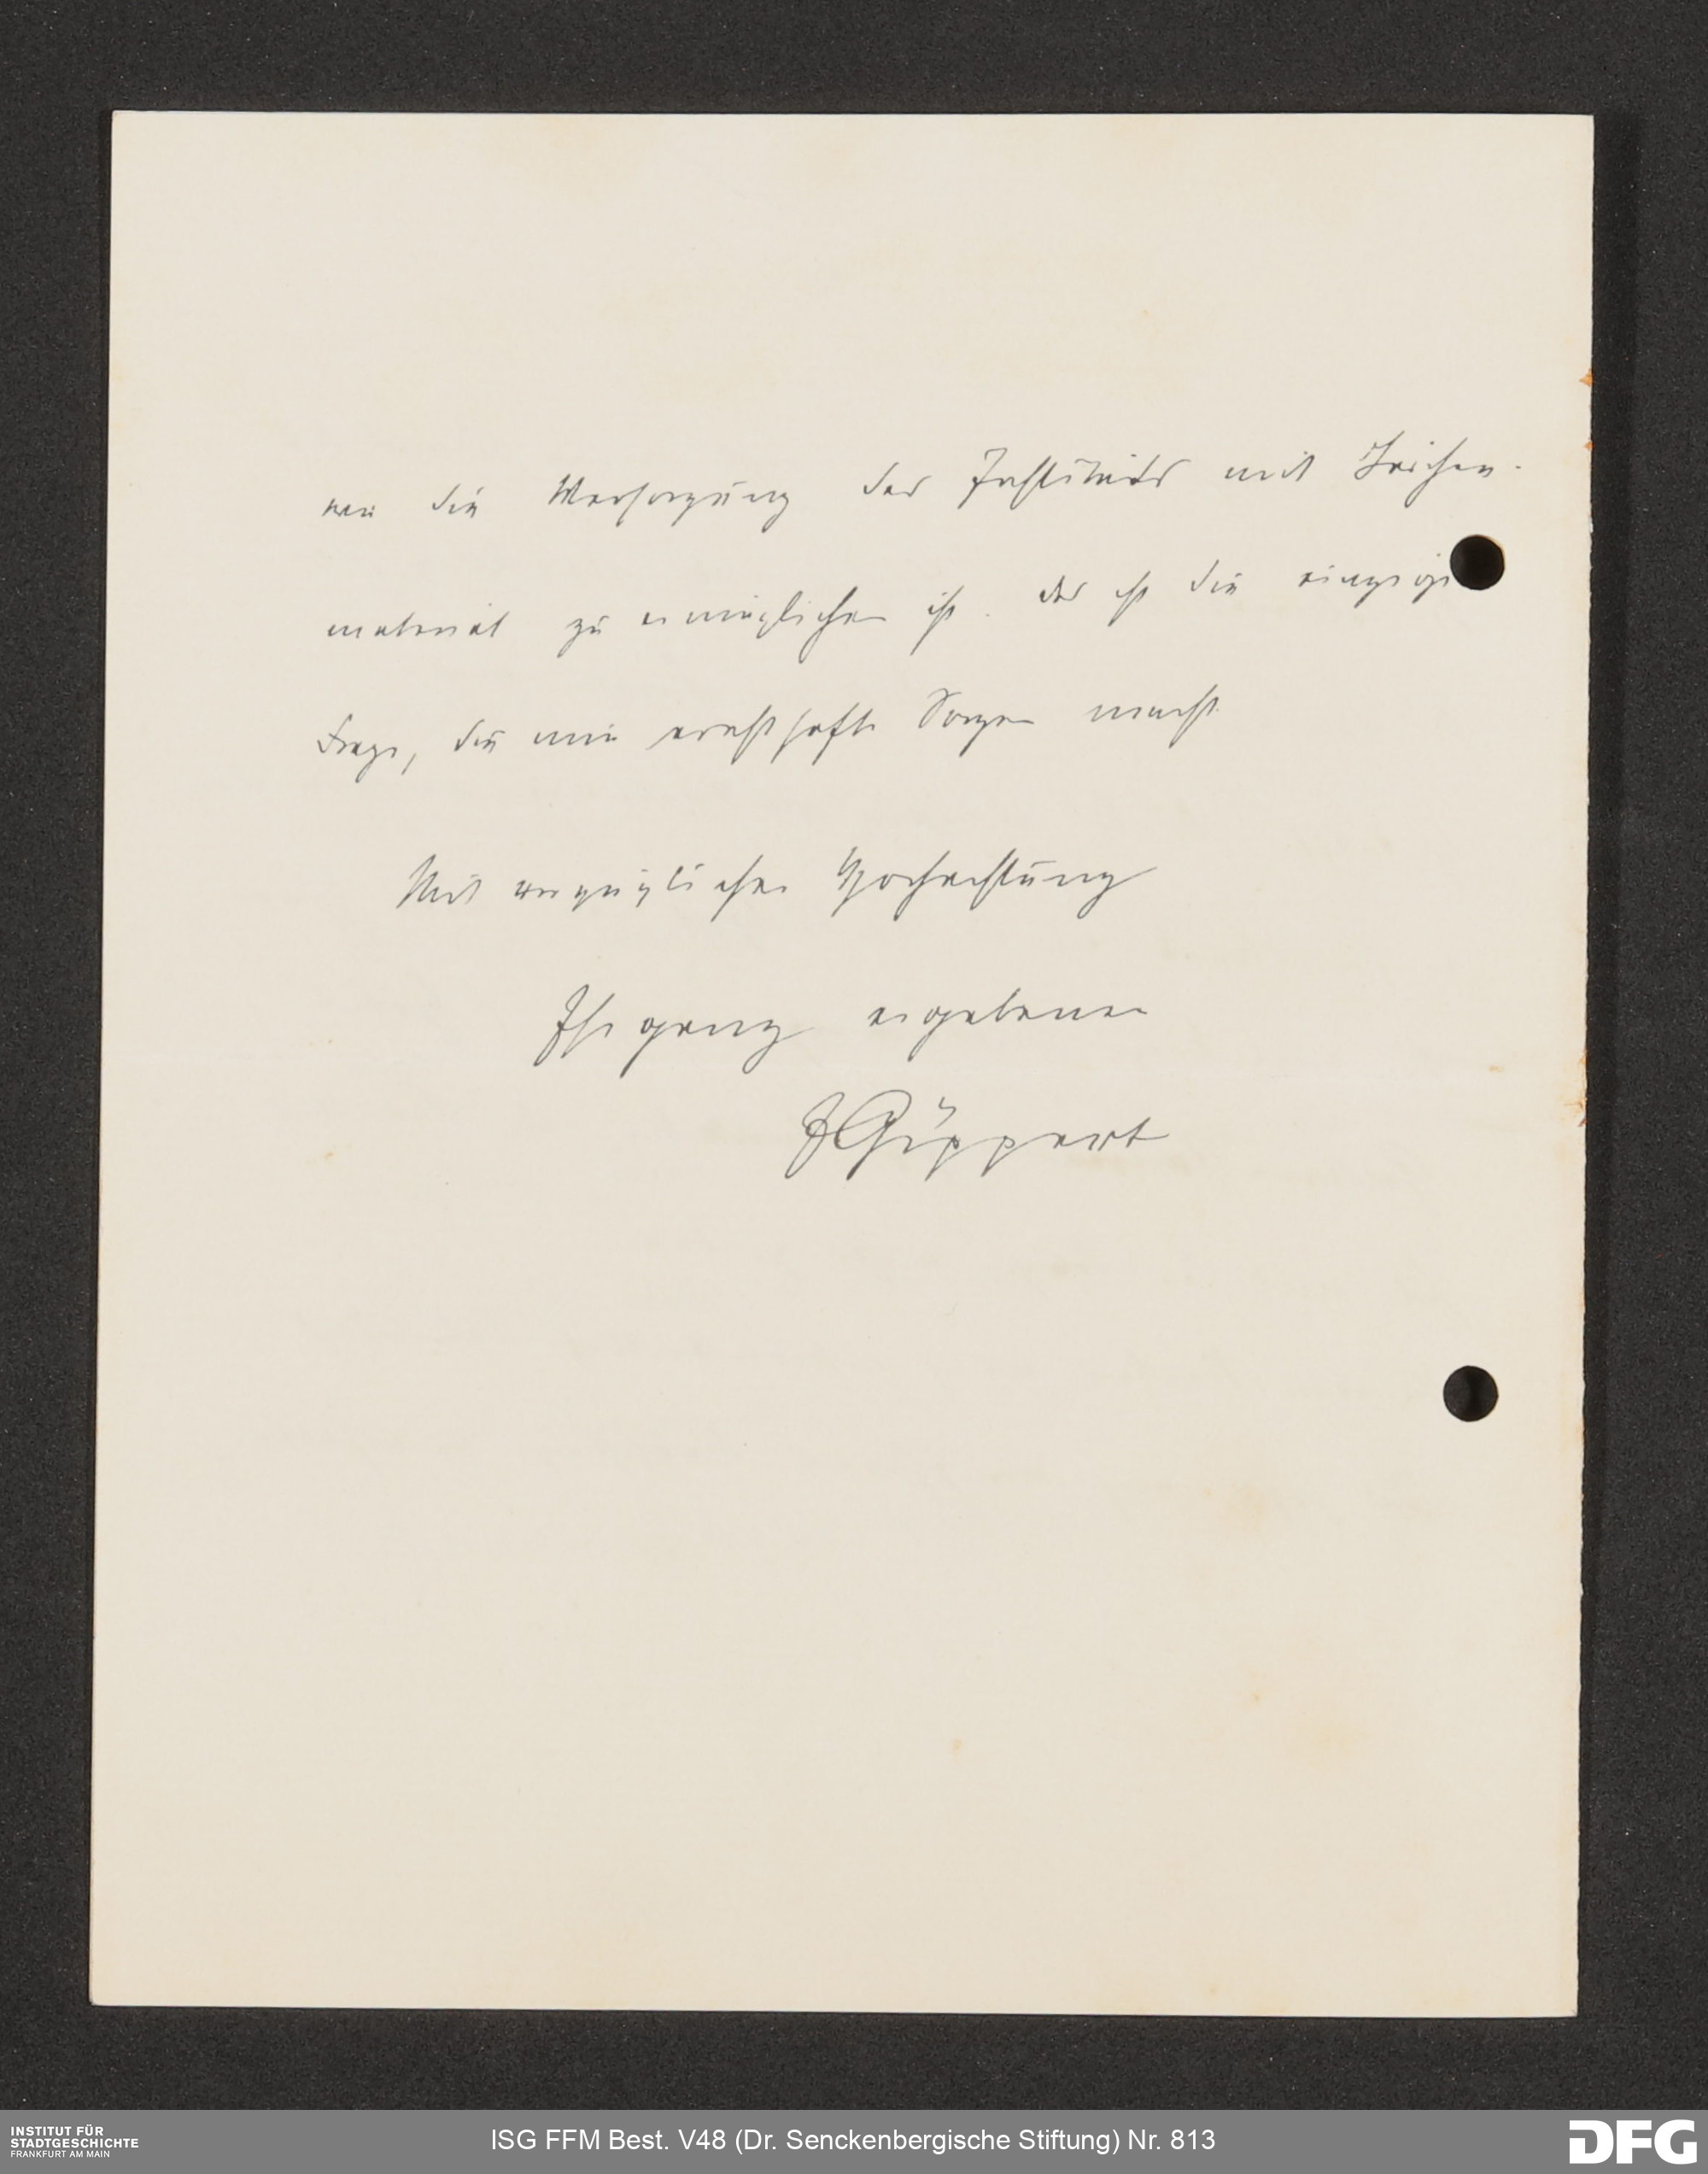 wie die Versorgung des Instituts mit Leichen-
material zu ermöglichen ist. Das ist die einzige
Frage, die mir ernsthafte Sorgen macht.
Mit vorzüglicher Hochachtung
Ihr ganz ergebener
Göppert
INSTITUT FÜR
STADTGESCHICHTE
FRANKFURT AM MAIN
ISG FFM Best. V48 (Dr. Senckenbergische Stiftung) Nr. 813
DFG